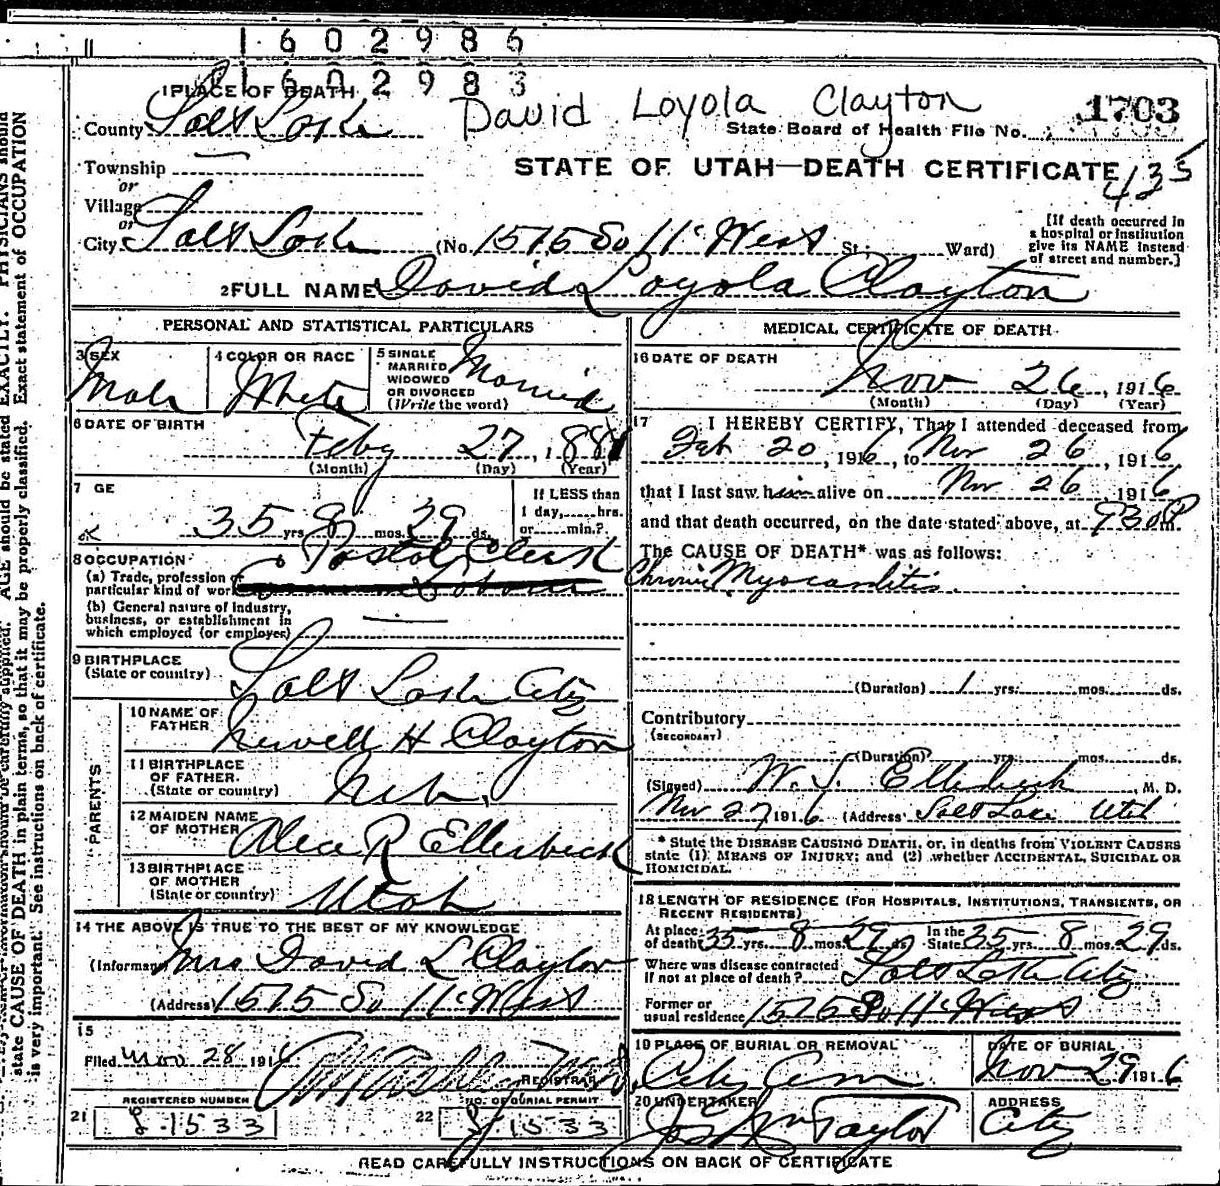 1602986
1602983
1 PLACE OF DEATH
David Loyola Clayton
1703
County Salt Lake
State Board of Health File No.
Township
STATE OF UTAH—DEATH CERTIFICATE
435
or
Village
or
City Salt Lake (No. 1575 So 11" West St. Ward)
[If death occurred in a hospital or institution give its NAME instead of street and number.]
2 FULL NAME David Loyola Clayton
PERSONAL AND STATISTICAL PARTICULARS
3 SEX
Male
4 COLOR OR RACE
White
5 SINGLE MARRIED WIDOWED OR DIVORCED (Write the word)
Married
6 DATE OF BIRTH
Feby 27, 1881
(Month) (Day) (Year)
7 GE
35 yrs. 8 mos. 29 ds.
If LESS than 1 day, hrs. or min.?
8 OCCUPATION
Postal Clerk
(a) Trade, profession or particular kind of work
(b) General nature of industry, business, or establishment in which employed (or employer)
9 BIRTHPLACE
(State or country) Salt Lake City
PARENTS
10 NAME OF FATHER Newell H Clayton
11 BIRTHPLACE OF FATHER (State or country) Neb.
12 MAIDEN NAME OF MOTHER Alice R Ellerbeck
13 BIRTHPLACE OF MOTHER (State or country) Utah
14 THE ABOVE IS TRUE TO THE BEST OF MY KNOWLEDGE
(Informant) Mrs David L Clayton
(Address) 1575 So 11" West
15
Filed Nov 28 1916
REGISTRAR
REGISTERED NUMBER
21 8-1533
NO. OF BURIAL PERMIT
22 8-1533
MEDICAL CERTIFICATE OF DEATH
16 DATE OF DEATH
Nov 26, 1916
(Month) (Day) (Year)
17 I HEREBY CERTIFY, That I attended deceased from
Feb 20, 1916, to Nov 26, 1916
that I last saw him alive on Nov 26 1916
and that death occurred, on the date stated above, at 930P m.
The CAUSE OF DEATH* was as follows:
Chronic Myocarditis.
(Duration) 1 yrs. mos. ds.
Contributory
(SECONDARY)
(Duration) yrs. mos. ds.
(Signed) Ellerbeck, M. D.
Nov 27 1916 (Address) Salt Lake Utah
* State the DISEASE CAUSING DEATH, or, in deaths from VIOLENT CAUSES
state (1) MEANS OF INJURY; and (2) whether ACCIDENTAL, SUICIDAL OR
HOMICIDAL.
18 LENGTH OF RESIDENCE (FOR HOSPITALS, INSTITUTIONS, TRANSIENTS, OR
RECENT RESIDENTS)
At place of death 35 yrs. 8 mos. 29 ds. In the State 35 yrs. 8 mos. 29 ds.
Where was disease contracted if not at place of death? Salt Lake City
Former or usual residence 1575 So 11" West
19 PLACE OF BURIAL OR REMOVAL
City Cem
DATE OF BURIAL
Nov 29 1916
20 UNDERTAKER
Taylor
ADDRESS
City
READ CAREFULLY INSTRUCTIONS ON BACK OF CERTIFICATE
AGE should be stated EXACTLY. PHYSICIANS should
state CAUSE OF DEATH in plain terms, so that it may be properly classified. Exact statement of OCCUPATION
is very important. See instructions on back of certificate.